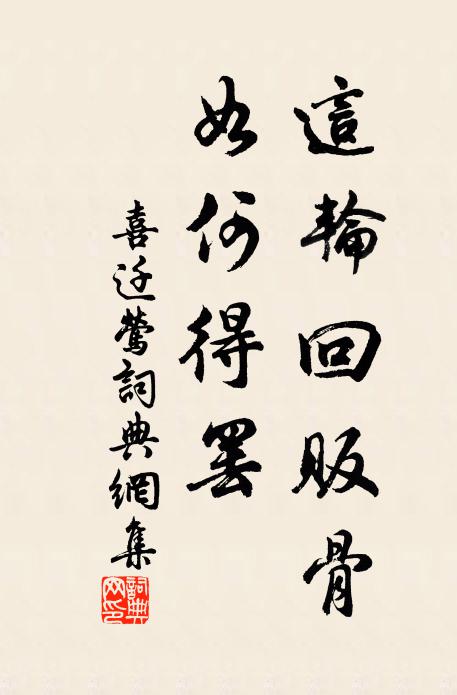 這輪回販骨
如何得罷
喜迁鶯詞典網集
詞典
网印